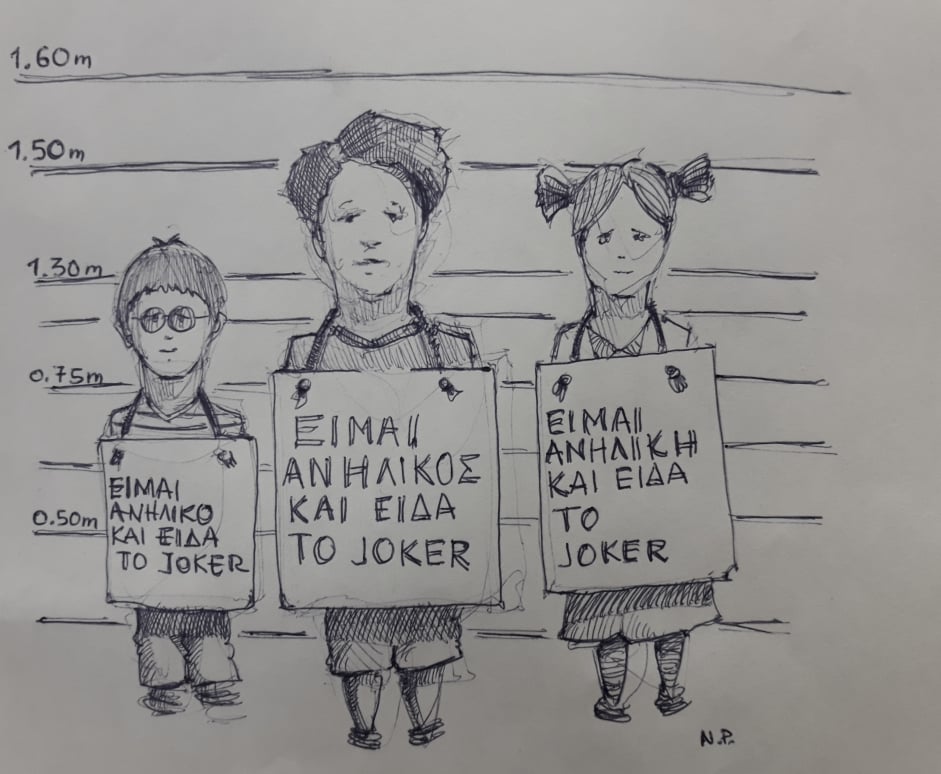 1.60m
1.50m
1.30m
0.75m
0.50m
ΕΙΜΑΙ
ΑΝΗΛΙΚΟ
ΚΑΙ ΕΙΔΑ
ΤΟ JOKER
ΕΙΜΑΙ
ΑΝΗΛΙΚΟΣ
ΚΑΙ ΕΙΔΑ
ΤΟ JOKER
ΕΙΜΑΙ
ΑΝΗΛΙΚΗ
ΚΑΙ ΕΙΔΑ
ΤΟ
JOKER
N.P.